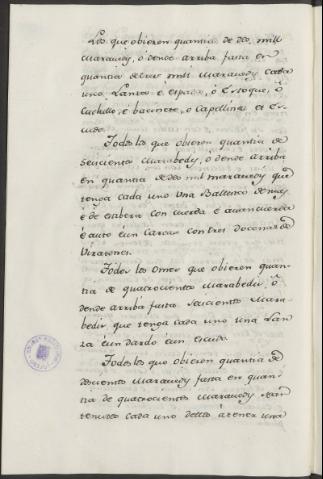 Los que obieren quantia de dos mill
maravedy, ó dende arriba fasta en
quantia de tres mill maravedy cada
uno Lanza é espada, ó Estoque, ó
Cuchillo é bacinete, ó Capellina et Es-
cudo.
Todos los que obieren quantia de
Seiscientos Marabedy, ó dende arriba
en quantia de dos mil maravedy que
tenga cada uno una Ballesta de nuez
é de estribera con cuerda é avancuerda
é cinto é un Carcax con tres docenas de
Viratones.
Todos los omes que obieren quan-
tia de quatrocientos marabedis, ó
dende arriba fasta Seiscientos mara-
bedis que tenga cada uno una Lan-
za é un dardo é un escudo.
Todos los que obieren quantia de
doscientos maravedy fasta en quan-
tia de quatrocientos maravedy sean
tenudos cada uno dellos á tener una